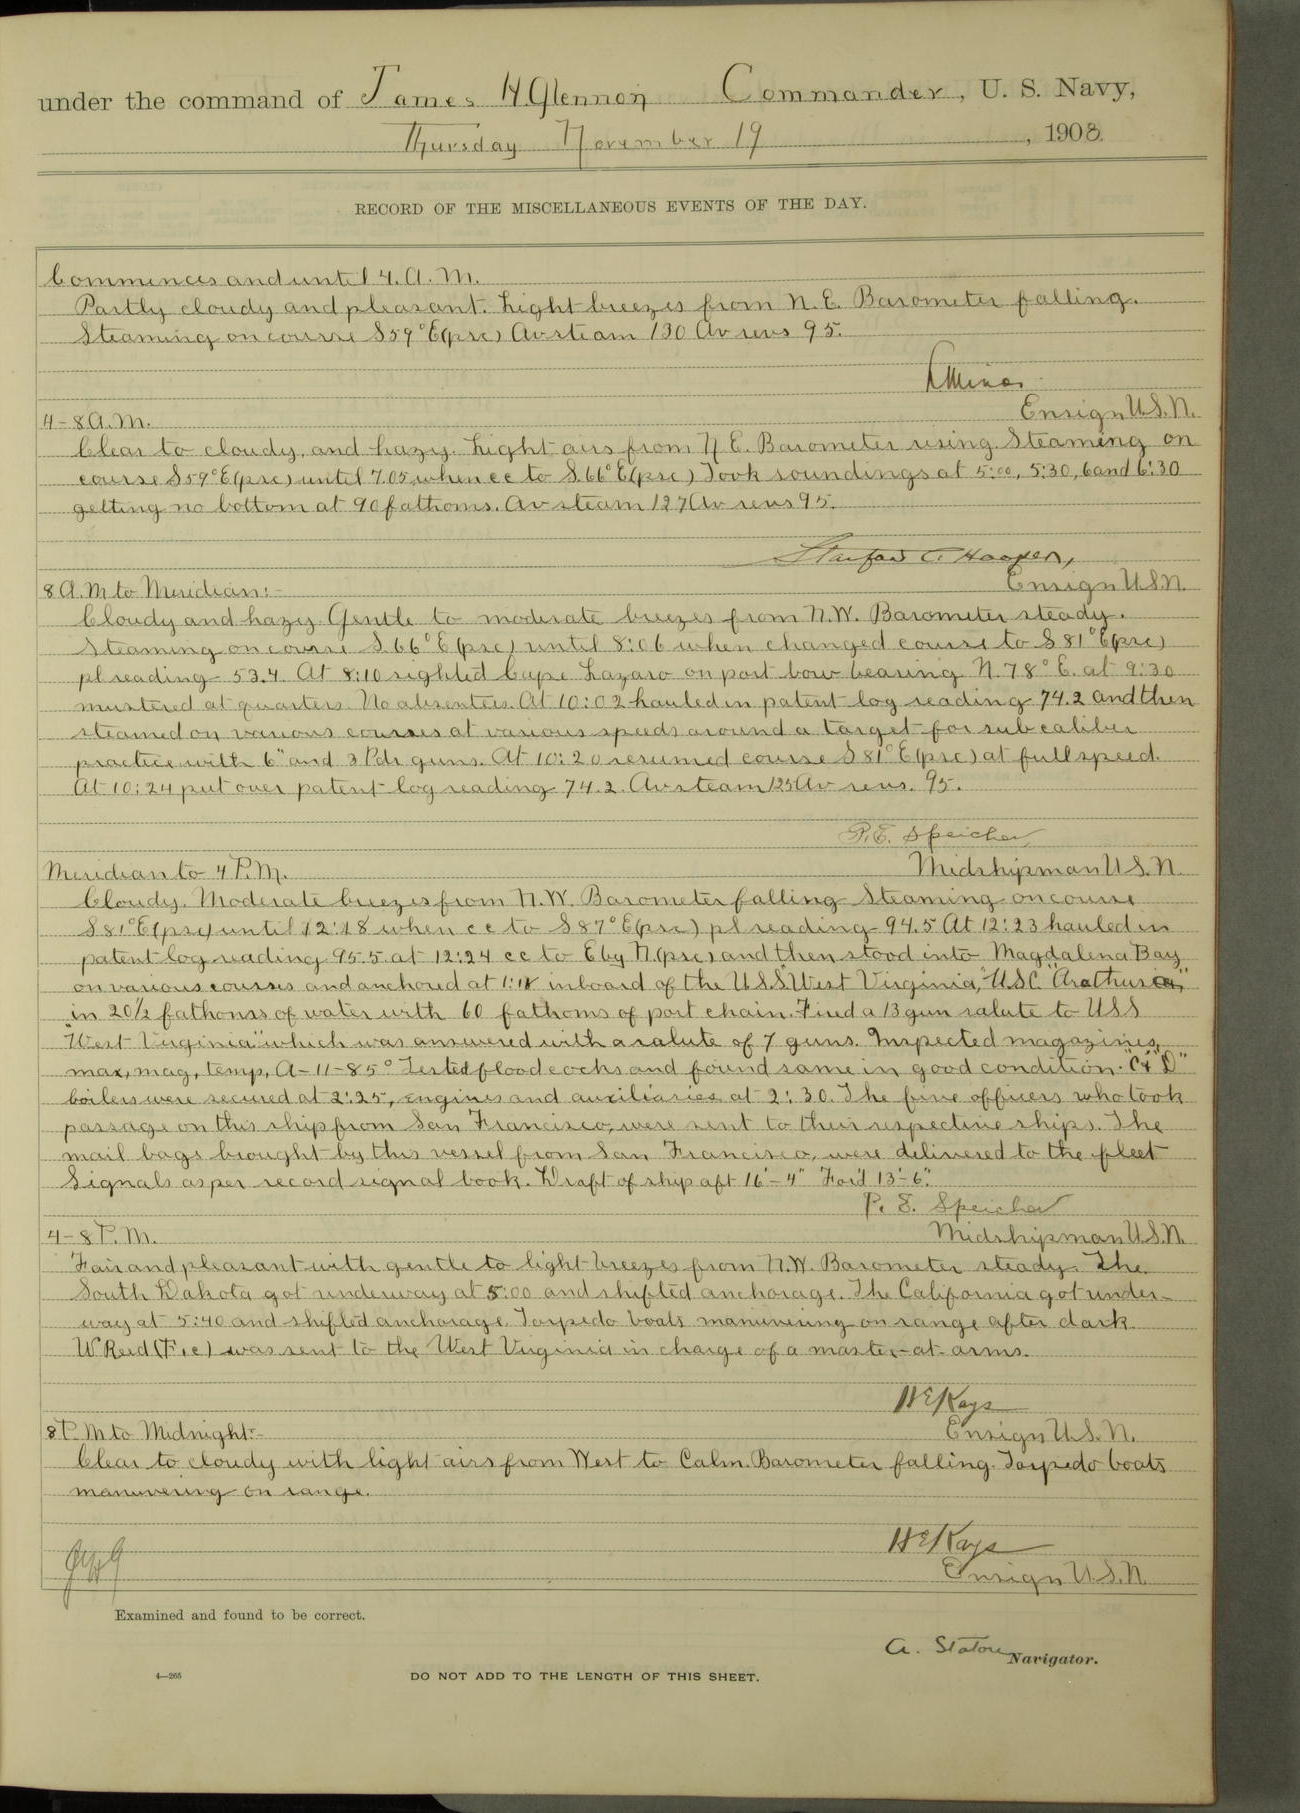 under the command of James H Glennon Commander, U. S. Navy,
Thursday November 19, 1908.
RECORD OF THE MISCELLANEOUS EVENTS OF THE DAY.
Commences and until 4. A. M.
Partly cloudy and pleasant. Light breezes from N. E. Barometer falling.
Steaming on course S59°E(psc) Av steam 130 Av revs 95.
Ensign U.S.N.
4-8 A.M.
Clear to cloudy, and hazy. Light airs from N E. Barometer rising. Steaming on
course S59°E(psc) until 7.05 when cc to S.66°E(psc) Took soundings at 5:00, 5:30, 6 and 6:30
getting no bottom at 90 fathoms. Av steam 127 Av revs 95.
Stanford C. Hooper,
Ensign U.S.N.
8 A.M to Meridian:-
Cloudy and hazy. Gentle to moderate breezes from N.W. Barometer steady.
Steaming on course S.66°E(psc) until 8:06 when changed course to S81°E(psc)
pl reading 53.4. At 8:10 sighted Cape Lazaro on port bow bearing N.78°E. at 9:30
mustered at quarters. No absentees. At 10:02 hauled in patent log reading 74.2 and then
steamed on various courses at various speeds around a target for sub caliber
practice with 6" and 3 Pdr guns. At 10:20 resumed course S81°E(psc) at full speed.
At 10:24 put over patent log reading 74.2. Av steam 125 Av revs. 95.
P.E. Speicher
Midshipman U.S.N.
Meridian to 4 P.M.
Cloudy. Moderate breezes from N.W. Barometer falling Steaming on course
S81°E(psc) until 12:18 when cc to S87°E(psc) pl reading 94.5 At 12:23 hauled in
patent log reading 95.5 at 12:24 cc to E by N.(psc) and then stood into Magdalena Bay
on various courses and anchored at 1:18 inboard of the U.S.S "West Virginia," U.S.C. "Arethusa,"
in 20½ fathoms of water with 60 fathoms of port chain. Fired a 13 gun salute to USS
"West Virginia" which was answered with a salute of 7 guns. Inspected magazines,
max, mag, temp, A-11-85° Tested flood cocks and found same in good condition. "C & D"
boilers were secured at 2:25, engines and auxiliaries at 2:30. The five officers who took
passage on this ship from San Francisco, were sent to their respective ships. The
mail bags brought by this vessel from San Francisco, were delivered to the fleet
Signals as per record signal book. Draft of ship aft 16'-4" For'd 13'-6".
P. E. Speicher
Midshipman U.S.N.
4-8 P.M.
Fair and pleasant with gentle to light breezes from N.W. Barometer steady. The
South Dakota got underway at 5:00 and shifted anchorage. The California got under-
way at 5:40 and shifted anchorage. Torpedo boats manuvering on range after dark.
W Reed (F,1c) was sent to the West Virginia in charge of a master-at-arms.
HEKays
Ensign U.S.N.
8 P.M to Midnight:-
Clear to cloudy with light airs from West to Calm. Barometer falling. Torpedo boats
manuvering on range.
HEKays
Ensign U.S.N.
JHG
Examined and found to be correct.
A. Staton Navigator.
4—265
DO NOT ADD TO THE LENGTH OF THIS SHEET.